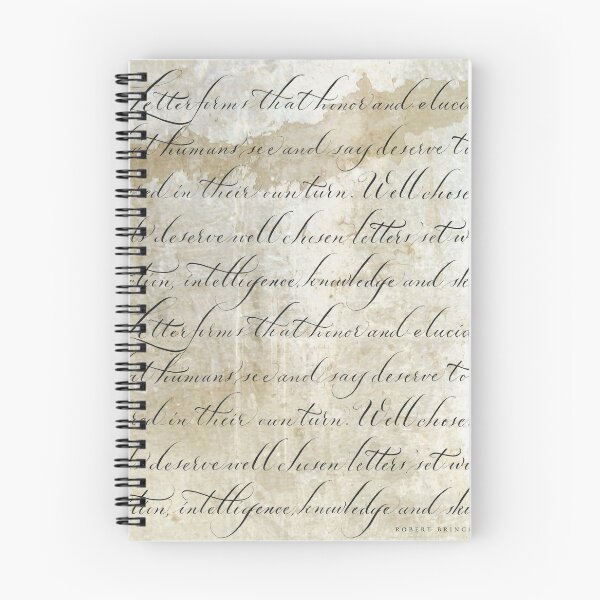 Letterforms that honor and elucid
at humans, see and say deserve to
red in their own turn. Well chose
ds deserve well chosen letters set w
tion, intelligence, knowledge and ski
Letterforms that honor and elucid
at humans, see and say deserve to
red in their own turn. Well chose
ds deserve well chosen letters set w
tion, intelligence, knowledge and ski
ROBERT BRINGH